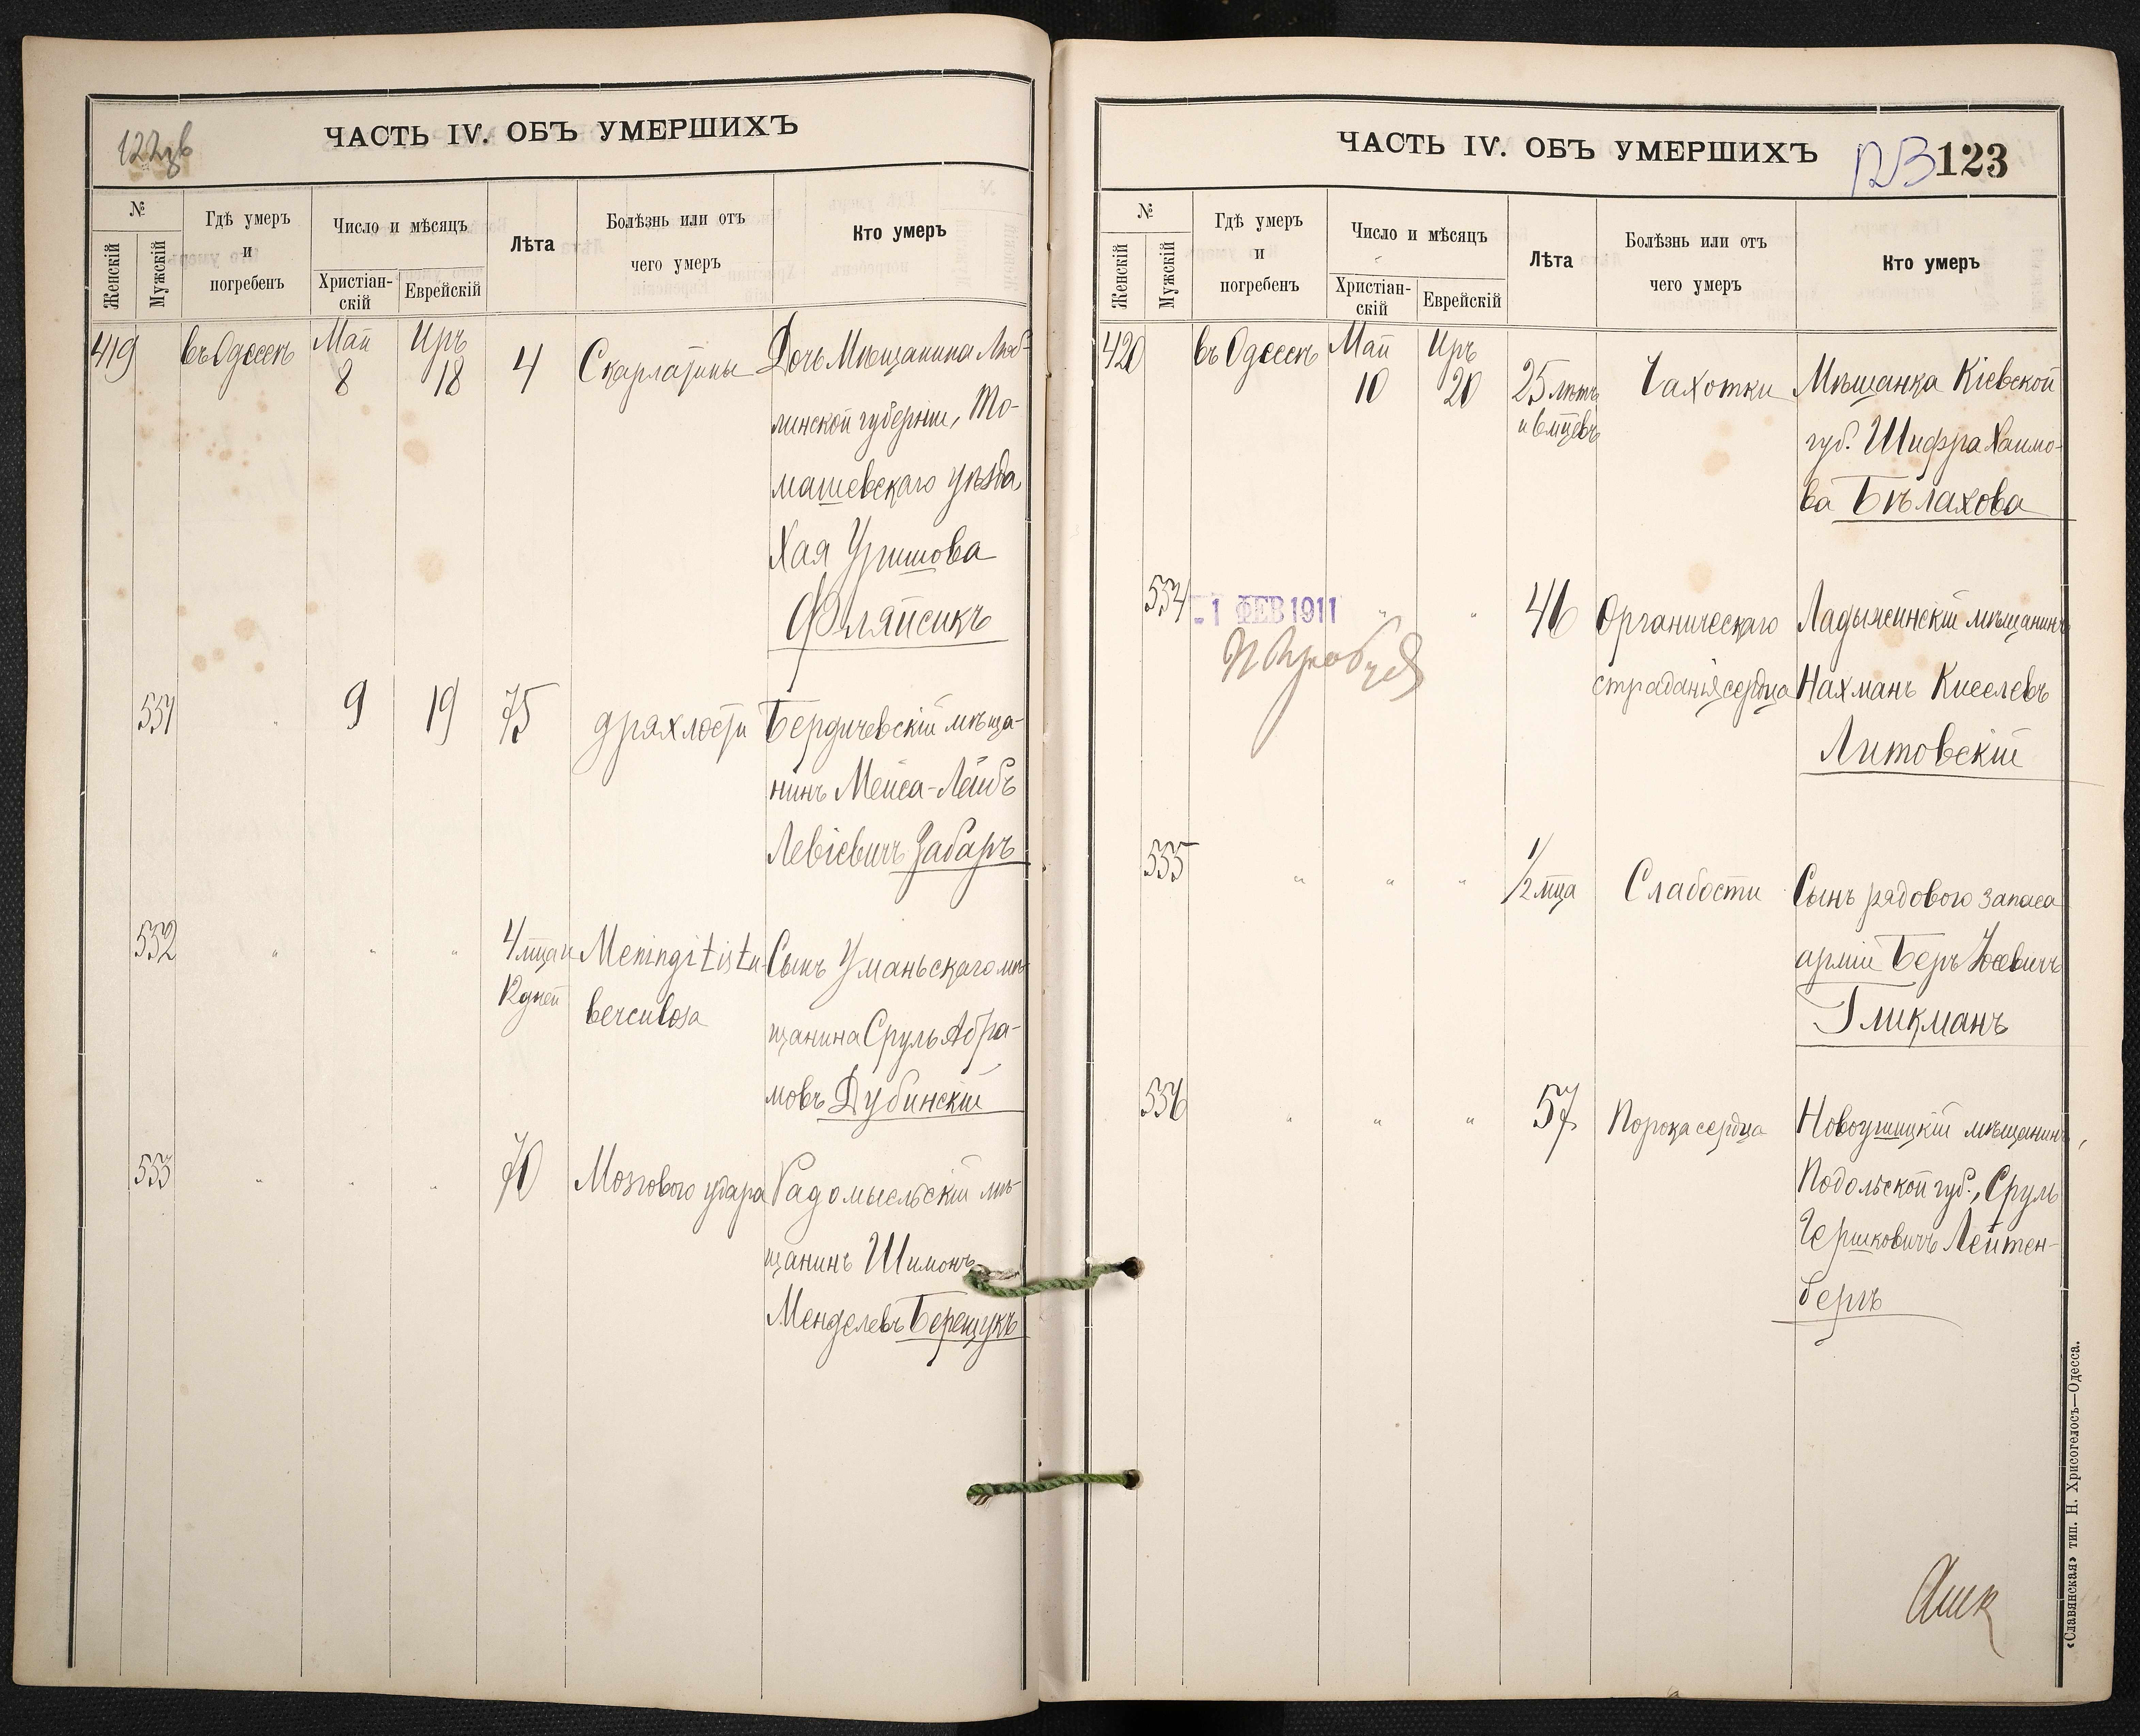 122зв
ЧАСТЬ IV. ОБЪ УМЕРШИХЪ
№
Женскій
Мужскій
Гдѣ умеръ
и
погребенъ
Число и мѣсяцъ
Христіан-
скій
Еврейскій
Лѣта
Болѣзнь или отъ
чего умеръ
Кто умеръ
419 въ Одессѣ Май 8 Иръ 18 4 Скарлатины Дочь Мѣщанина Люб-
линской губерніи, То-
машевскаго уѣзда,
Хая Уришова
Фляйсикъ
551 " 9 19 75 дряхлости Бердичевскій мѣща-
нинъ Мейса-Лейбъ
Левіевичъ Забаръ
552 " " " 4 мца и Meningitis tu- Сынъ Уманьскаго мѣ-
12 дней berculosa щанина Сруль Абра-
мовъ Дубинскій
553 " " " 70 Мозгового удара Радомысльскій мѣ-
щанинъ Шимонъ
Менделевъ Берещукъ
ЧАСТЬ IV. ОБЪ УМЕРШИХЪ
123 123
№
Женскій
Мужскій
Гдѣ умеръ
и
погребенъ
Число и мѣсяцъ
Христіан-
скій
Еврейскій
Лѣта
Болѣзнь или отъ
чего умеръ
Кто умеръ
420 въ Одессѣ Май 10 Иръ 20 25 лѣтъ Чахотки Мѣщанка Кіевской
и 6 мцевъ губ. Шифра Хаимо-
ва Бѣлахова
554 -1 ФЕВ 1911 " " 46 Органическаго Ладыжинскій мѣщанинъ
страданія сердца Нахманъ Киселевъ
Литовскій
555 " " " 1/2 мца Слабости Сынъ рядового запаса
арміи Беръ Іосевичъ
Гликманъ
556 " " " 57 Порока сердца Новоушицкій мѣщанинъ,
Подольской губ., Сруль
Гершковичъ Лейтен-
бергъ
«Славянская» тип. Н. Хрисогелосъ—Одесса.